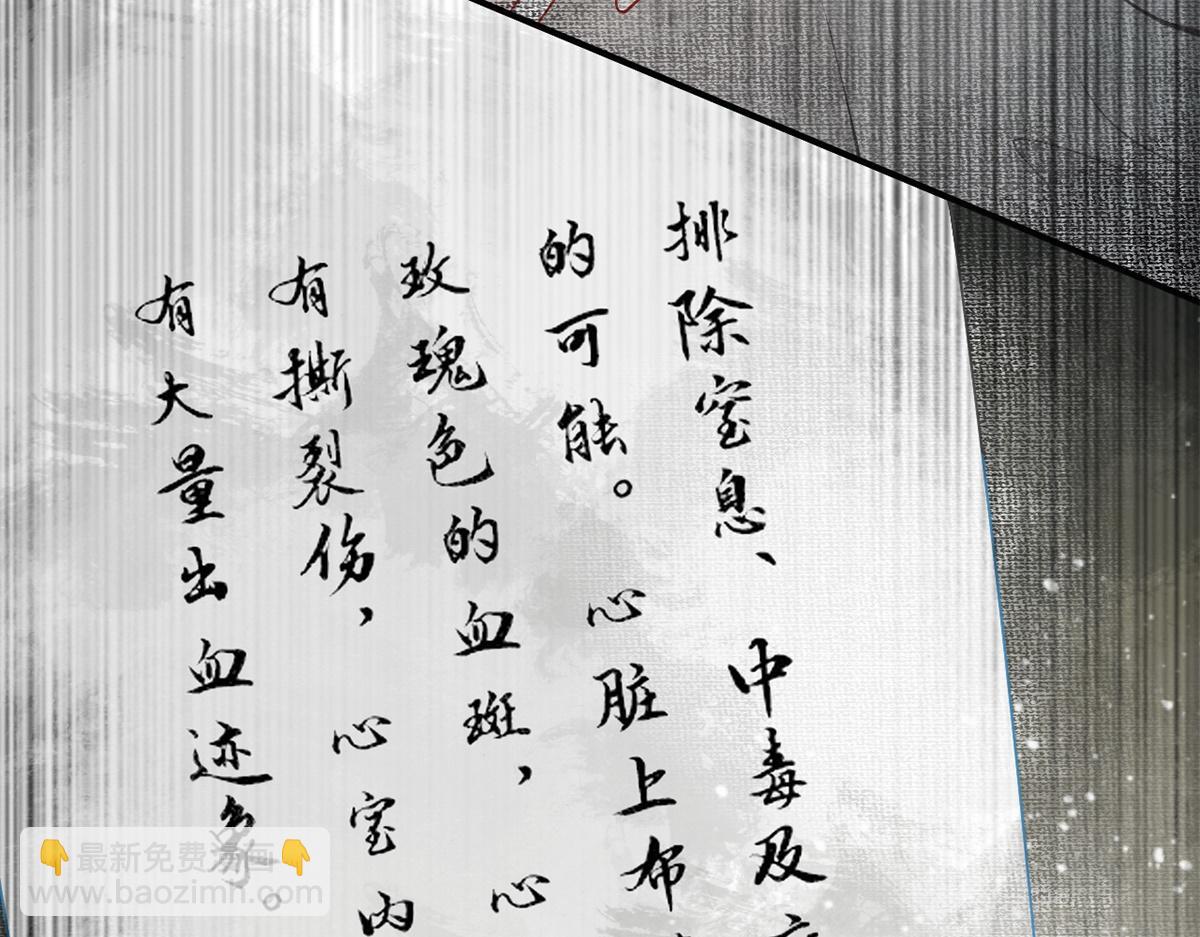 排除窒息、中毒及
的可能。心脏上布
玫瑰色的血斑，心
有撕裂伤，心室内
有大量出血迹象。
👇最新免费漫画👇
www.baozimh.com